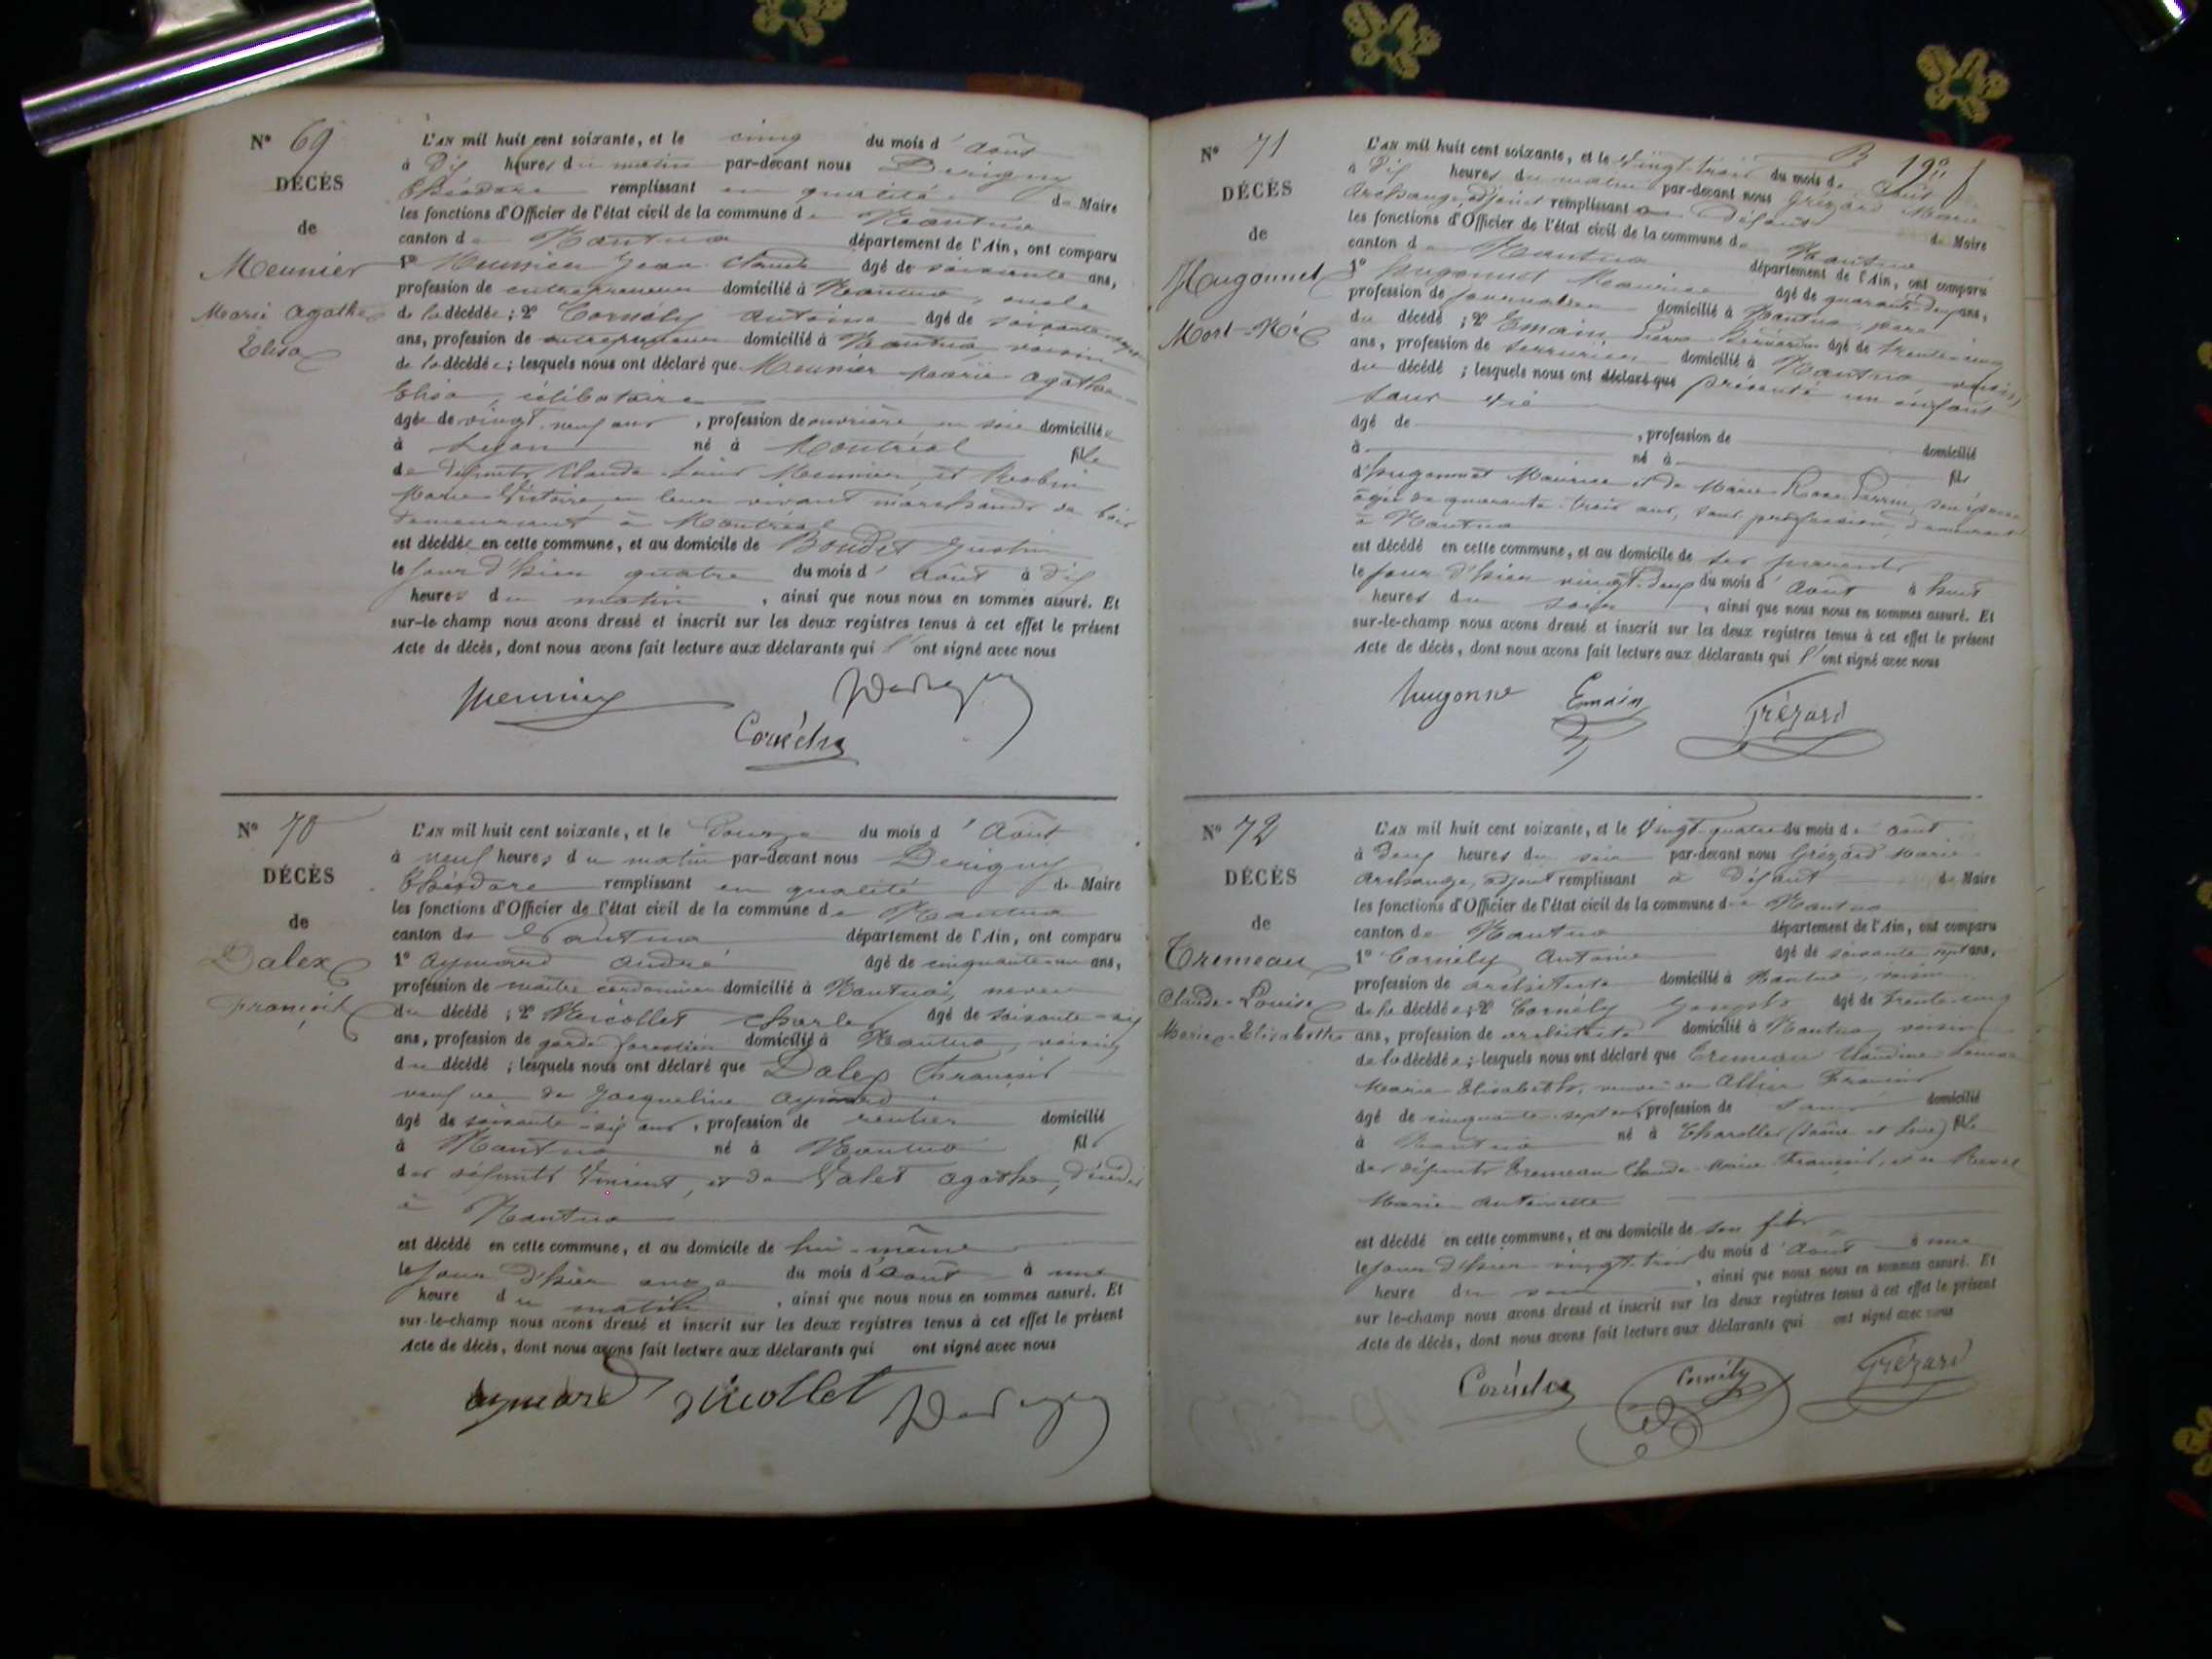 N° 69
DÉCÈS
de
Meunier
Marie Agathe
Elisa
L'AN mil huit cent soixante, et le cinq du mois d'Août
à dix heures du matin par-devant nous Derigny
Théodore remplissant en qualité de Maire
les fonctions d'Officier de l'état civil de la commune de Nantua
canton de Nantua département de l'Ain, ont comparu
1° Meunier Jean Claude âgé de soixante ans,
profession de entrepreneur domicilié à Nantua, oncle
de la décédée ; 2° Cornély Antoine âgé de soixante
ans, profession de entrepreneur domicilié à Nantua, voisin
de la décédée ; lesquels nous ont déclaré que Meunier Marie Agathe
Elisa, célibataire
âgée de vingt neuf ans, profession de ouvrière en soie domiciliée
à Lyon né à Montréal fille
de défunts Claude Louis Meunier, et Robin
Marie Victoire, en leur vivant marchands de bois
demeurant à Montréal
est décédée en cette commune, et au domicile de Boudet Justin
le jour d'hier quatre du mois d'août à dix
heures du matin, ainsi que nous nous en sommes assuré. Et
sur-le-champ nous avons dressé et inscrit sur les deux registres tenus à cet effet le présent
Acte de décès, dont nous avons fait lecture aux déclarants qui l'ont signé avec nous
Meunier Derigny
Cornély
N° 70
DÉCÈS
de
Dalex
François
L'AN mil huit cent soixante, et le douze du mois d'Août
à neuf heures du matin par-devant nous Derigny
Théodore remplissant en qualité de Maire
les fonctions d'Officier de l'état civil de la commune de Nantua
canton de Nantua département de l'Ain, ont comparu
1° Aymard André âgé de cinquante-un ans,
profession de maître cordonnier domicilié à Nantua, neveu
du décédé ; 2° Nicollet Charles âgé de soixante-six
ans, profession de garde forestier domicilié à Nantua, voisin
du décédé ; lesquels nous ont déclaré que Dalex François
veuf de Jacqueline Aymard
âgé de soixante-six ans, profession de rentier domicilié
à Nantua né à Nantua fils
des défunts Vincent, et de Valet Agathe, décédés
à Nantua
est décédé en cette commune, et au domicile de lui-même
le jour d'hier onze du mois d'août à une
heure du matin, ainsi que nous nous en sommes assuré. Et
sur-le-champ nous avons dressé et inscrit sur les deux registres tenus à cet effet le présent
Acte de décès, dont nous avons fait lecture aux déclarants qui ont signé avec nous
aymard Nicollet Derigny
N° 71
DÉCÈS
de
Hugonnet
Mort-Né
L'AN mil huit cent soixante, et le vingt-trois du mois de Août
à dix heures du matin par-devant nous Grézard Marie
Archange, adjoint remplissant à Défaut de Maire
les fonctions d'Officier de l'état civil de la commune de Nantua
canton de Nantua département de l'Ain, ont comparu
1° hugonnet Maurice âgé de quarante-deux ans,
profession de journalier domicilié à Nantua, père
du décédé ; 2° Emain Pierre Bernardin âgé de trente-cinq
ans, profession de serrurier domicilié à Nantua, voisin
du décédé ; lesquels nous ont déclaré que présenté un enfant
sans vie
âgé de , profession de domicilié
à né à fils
d'hugonnet Maurice et de Marie Rose Perrin, son épouse
âgée de quarante-trois ans, sans profession, demeurant
à Nantua
est décédé en cette commune, et au domicile de ses parents
le jour d'hier vingt-deux du mois d'Août à huit
heures du soir, ainsi que nous nous en sommes assuré. Et
sur-le-champ nous avons dressé et inscrit sur les deux registres tenus à cet effet le présent
Acte de décès, dont nous avons fait lecture aux déclarants qui l'ont signé avec nous
hugonne Emain Grézard
N° 72
DÉCÈS
de
Tremeau
Claude-Louise
Marie-Elisabeth
L'AN mil huit cent soixante, et le vingt-quatre du mois de août
à deux heures du soir par-devant nous Grézard Marie
Archange, adjoint remplissant à Défaut de Maire
les fonctions d'Officier de l'état civil de la commune de Nantua
canton de Nantua département de l'Ain, ont comparu
1° Cornély Antoine âgé de soixante sept ans,
profession de architecte domicilié à Nantua, voisin
de la décédée ; 2° Cornély Joseph âgé de trente-cinq
ans, profession de architecte domicilié à Nantua, voisin
de la décédée ; lesquels nous ont déclaré que Tremeau Claudine Louise
Marie Elisabeth, veuve de Allier François
âgé de cinquante-sept ans, profession de sans domicilié
à Nantua né à Charolles (Saône et Loire) fille
des défunts Tremeau Claude Marie François, et de
Marie Antoinette
est décédé en cette commune, et au domicile de son fils
le jour d'hier vingt-trois du mois d'Août à une
heure du soir, ainsi que nous nous en sommes assuré. Et
sur le-champ nous avons dressé et inscrit sur les deux registres tenus à cet effet le présent
Acte de décès, dont nous avons fait lecture aux déclarants qui ont signé avec nous
Cornély Cornély Grézard